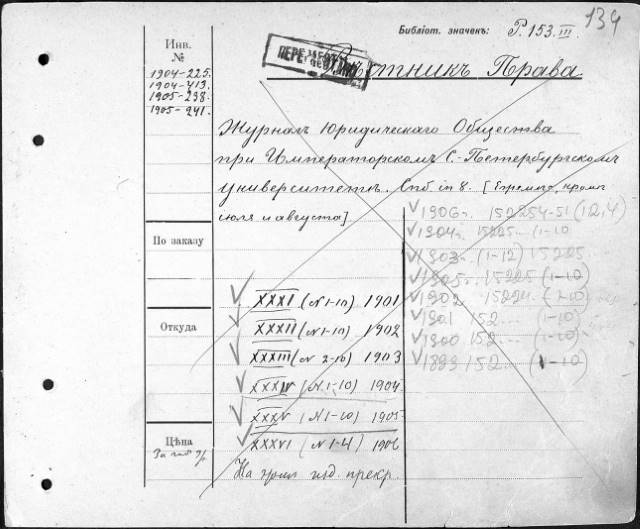 Библіот. значекъ: Р. 153. III.
134
Инв.
№
1904-225.
1904-413.
1905-238.
1905-241.
Вѣстникъ Права.
Журналъ Юридическаго Общества
при Императорскомъ С.-Петербургскомъ
университетѣ. Спб. in 8. [Ежемѣс., кромѣ
июля и августа].
По заказу
Откуда
Цѣна
XXXI (N 1-10) 1901
XXXII (N 1-10) 1902
XXXIII (N 2-10) 1903
XXXIV (N 1-10) 1904
XXXV (N 1-10) 1905
XXXVI (N 1-4) 1906
На
изд. прекр.
1906г. 152254-51 (12,4)
1904г. 15225 (1-10)
1903г. (1-12) 15225
1905г. 15225 (1-10)
1902 15224 (1-10)
1901 152 (1-10)
1900 152 (1-10)
1899 152 (1-10)